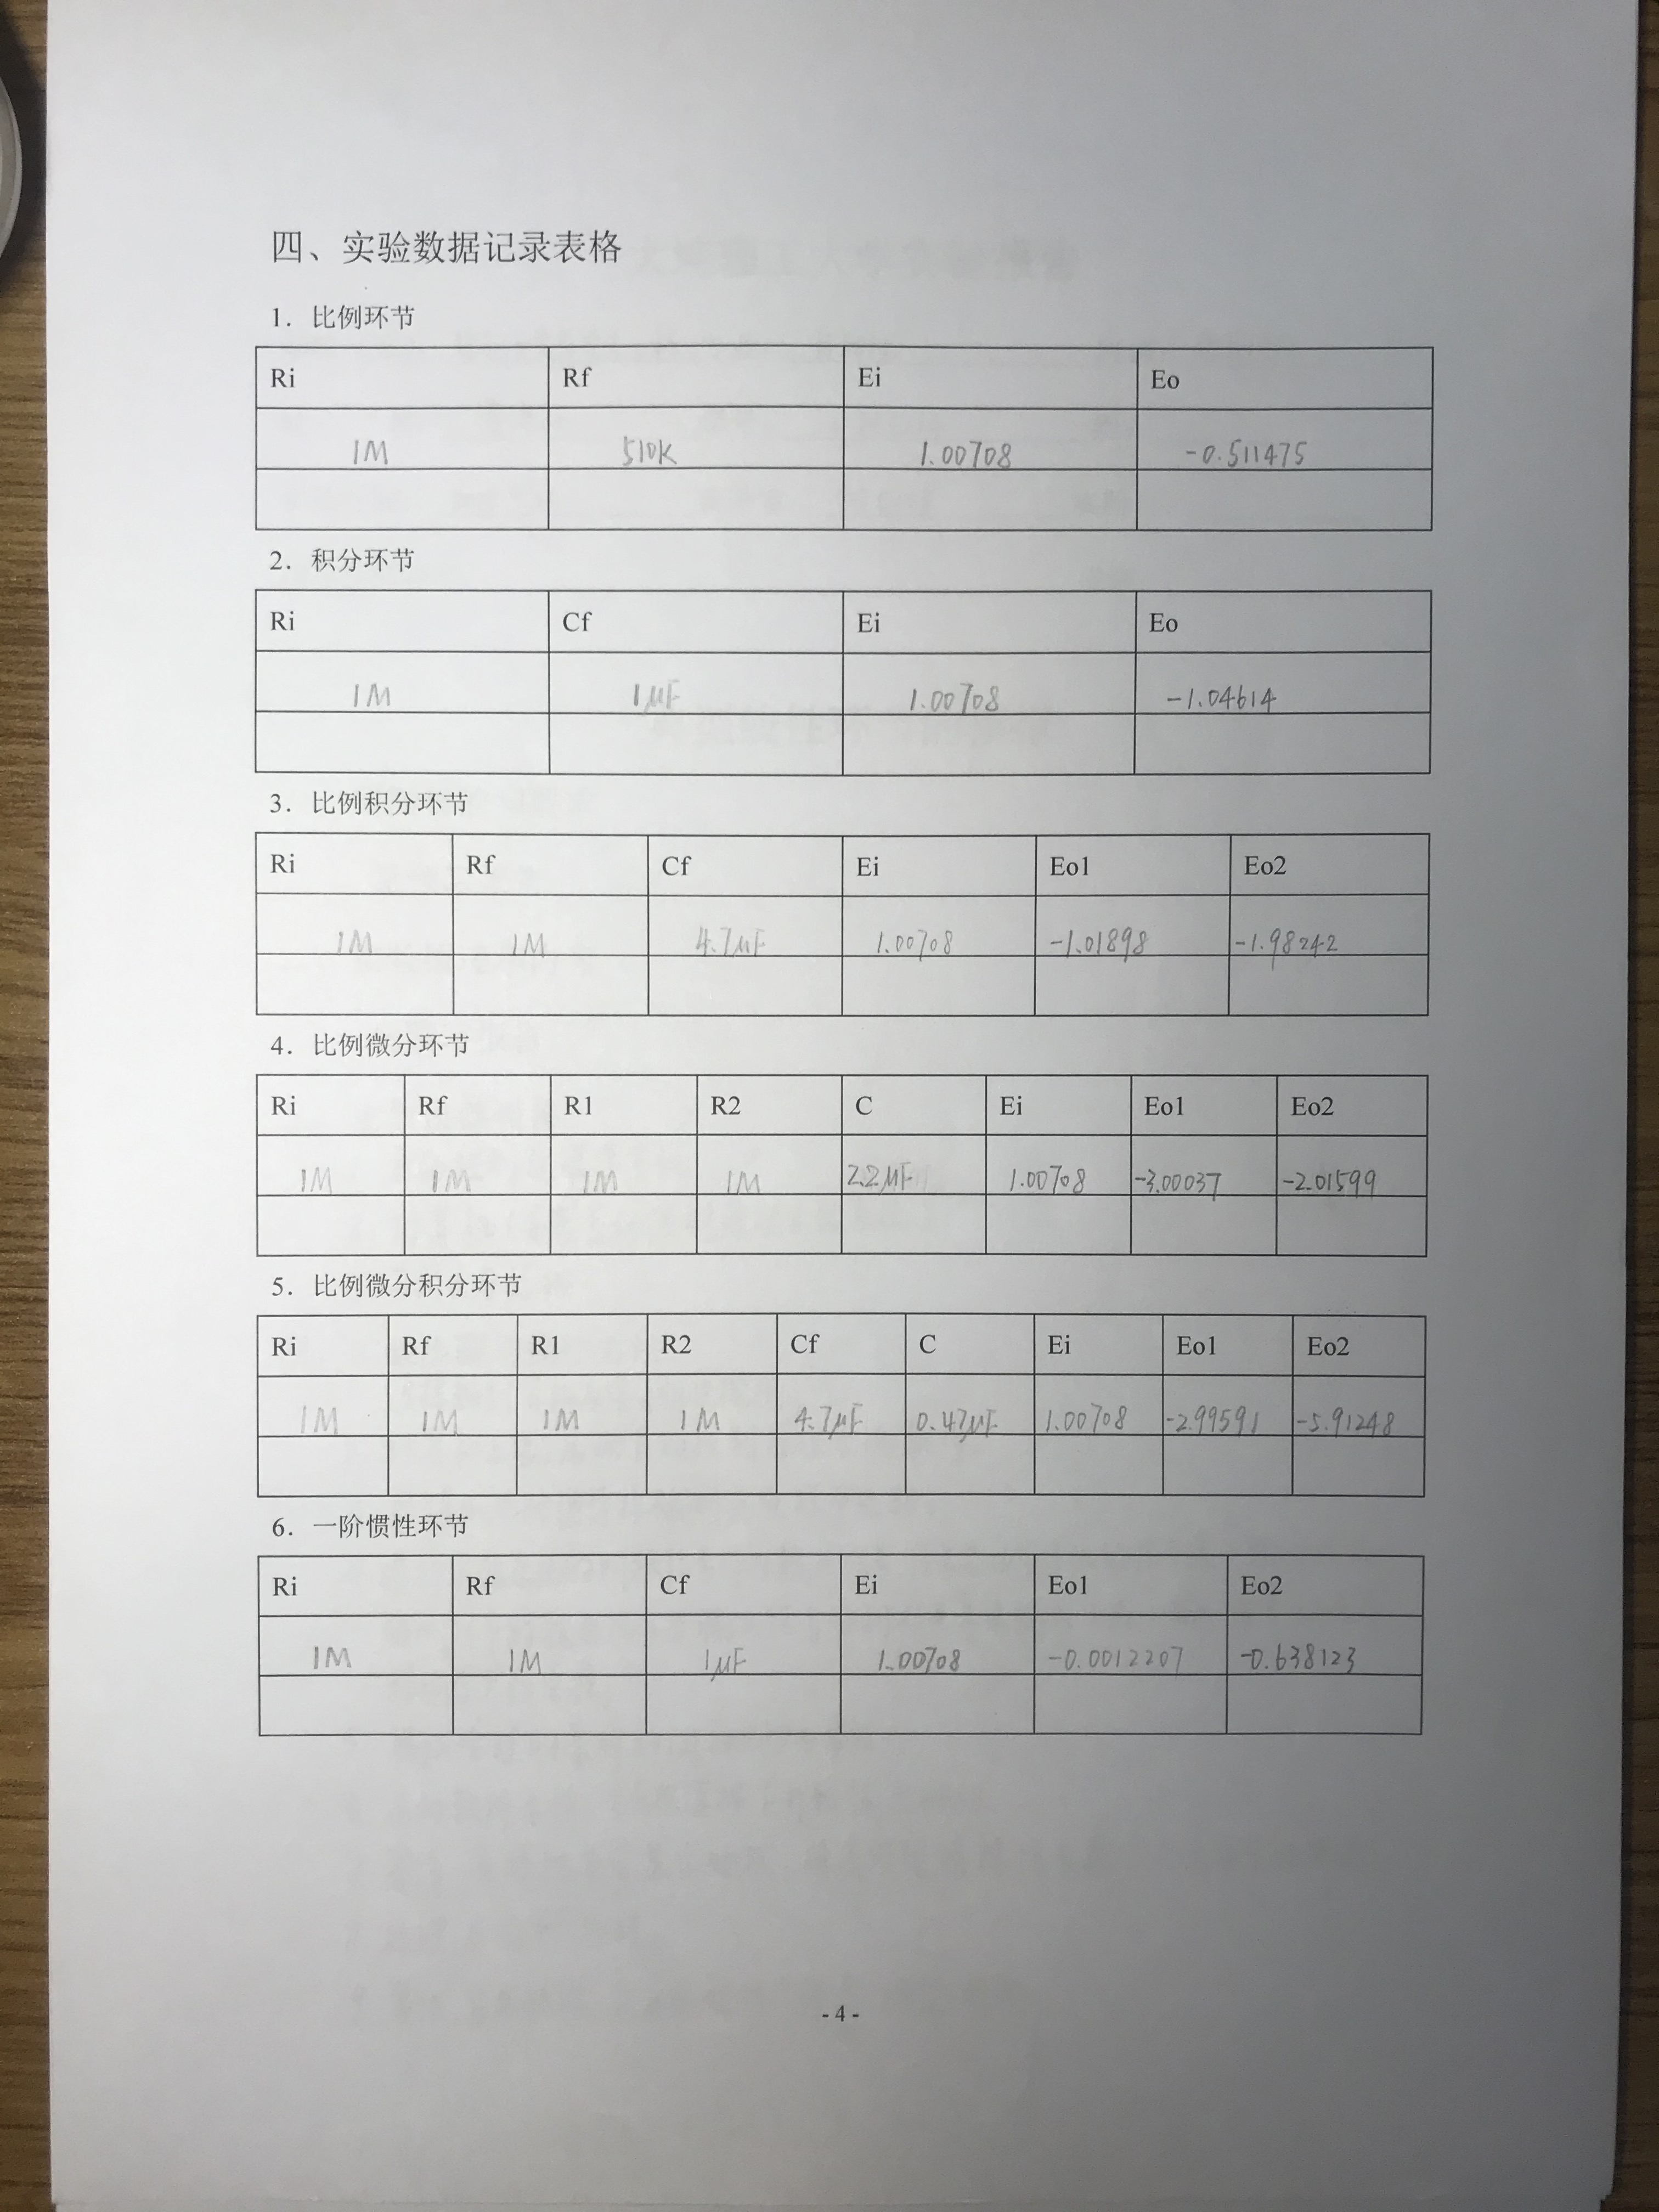 四、实验数据记录表格
1. 比例环节
Ri Rf Ei Eo
1M 510K 1.00708 -0.511475
2. 积分环节
Ri Cf Ei Eo
1M 1μF 1.00708 -1.04614
3. 比例积分环节
Ri Rf Cf Ei Eo1 Eo2
1M 1M 4.7μF 1.00708 -1.01898 -1.98242
4. 比例微分环节
Ri Rf R1 R2 C Ei Eo1 Eo2
1M 1M 1M 1M 2.2μF 1.00708 -3.00037 -2.01599
5. 比例微分积分环节
Ri Rf R1 R2 Cf C Ei Eo1 Eo2
1M 1M 1M 1M 4.7μF 0.47μF 1.00708 -2.99591 -5.91248
6. 一阶惯性环节
Ri Rf Cf Ei Eo1 Eo2
1M 1M 1μF 1.00708 -0.0012207 -0.638123
- 4 -